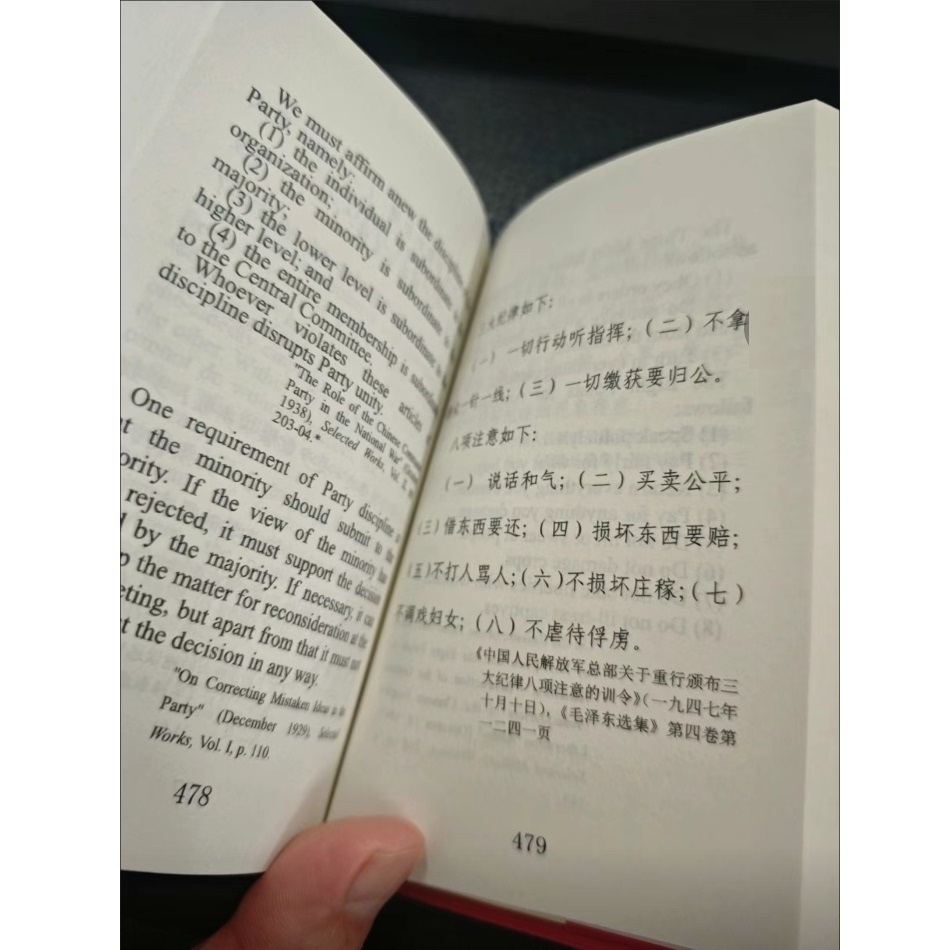 We must affirm anew the discipline
Party, namely:
(1) the individual is subordinate
organization;
(2) the minority is subordinate
majority;
(3) the lower level is subordinate
higher level; and
(4) the entire membership is
to the Central Committee.
Whoever violates these articles
discipline disrupts Party unity.
"The Role of the Chinese
Party in the National War"
1938), Selected Works, Vol.
203-04.*
One requirement of Party discipline
the minority should submit to the
If the view of the minority has
rejected, it must support the decision
by the majority. If necessary, it can
the matter for reconsideration at the
but apart from that it must not
the decision in any way.
"On Correcting Mistaken Ideas in the
Party" (December 1929), Selected
Works, Vol. I, p. 110.
478
大纪律如下:
(一) 一切行动听指挥; (二) 不拿
一针一线; (三) 一切缴获要归公。
八项注意如下:
(一) 说话和气; (二) 买卖公平;
(三) 借东西要还; (四) 损坏东西要赔;
(五)不打人骂人; (六)不损坏庄稼; (七)
不调戏妇女; (八) 不虐待俘虏。
《中国人民解放军总部关于重行颁布三
大纪律八项注意的训令》(一九四七年
十月十日), 《毛泽东选集》第四卷第
一二四一页
479